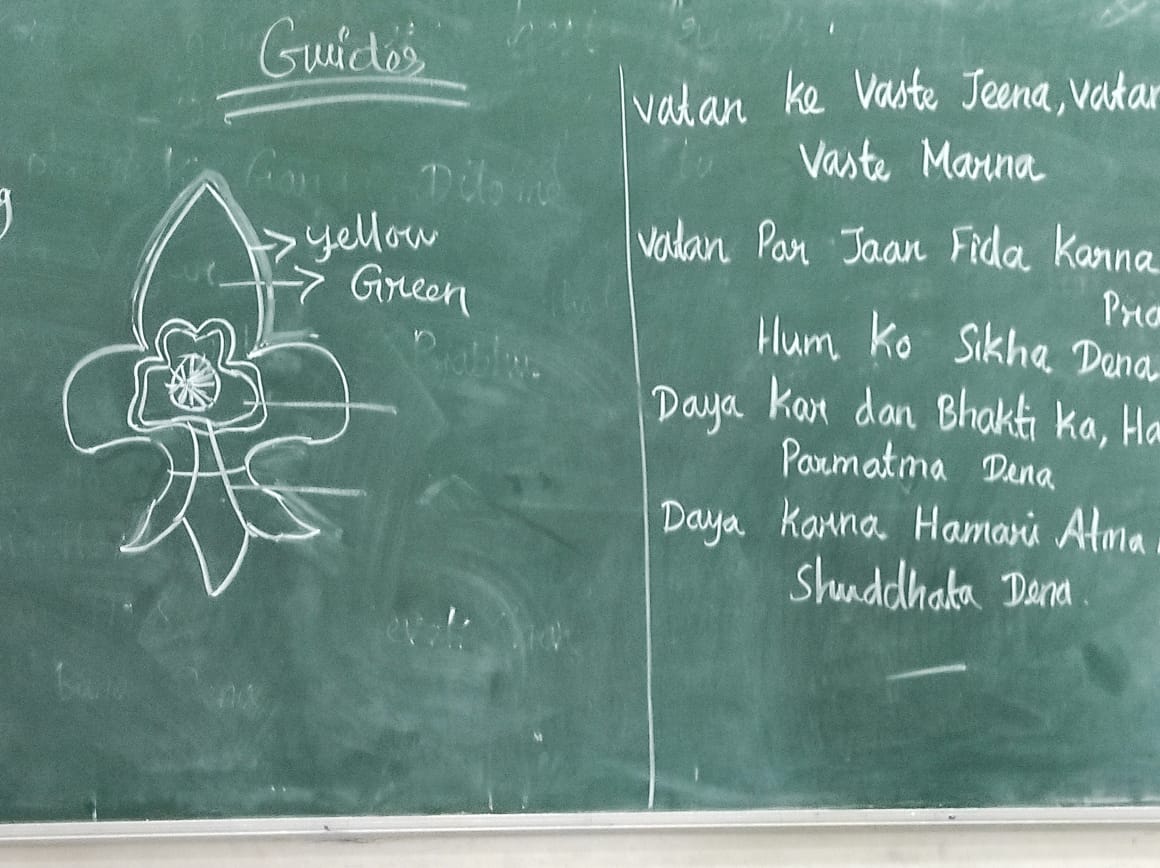 Guides
yellow
Green
vatan ke Vaste Jeena, vatan
Vaste Marna
vatan Par Jaan Fida Karna
Hum Ko Sikha Dena
Daya Kar dan Bhakti ka, Ha
Parmatma Dena
Daya Karna Hamari Atma
Shuddhata Dena.